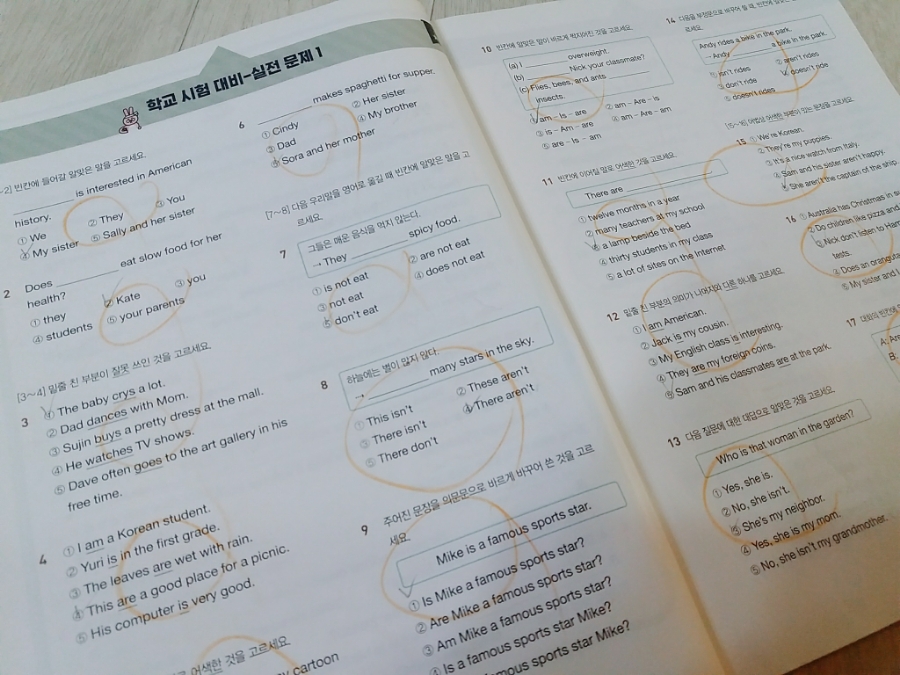 학교 시험 대비-실전 문제 1
~2] 빈칸에 들어갈 알맞은 말을 고르세요.
is interested in American
history.
① We
② They
③ You
④ My sister
⑤ Sally and her sister
2
Does eat slow food for her
health?
① they
② Kate
③ you
④ students
⑤ your parents
[3~4] 밑줄 친 부분이 잘못 쓰인 것을 고르세요.
3
① The baby crys a lot.
② Dad dances with Mom.
③ Sujin buys a pretty dress at the mall.
④ He watches TV shows.
⑤ Dave often goes to the art gallery in his
free time.
4
① I am a Korean student.
② Yuri is in the first grade.
③ The leaves are wet with rain.
④ This are a good place for a picnic.
⑤ His computer is very good.
어색한 것을 고르세요.
cartoon
6
makes spaghetti for supper.
① Cindy
② Her sister
③ Dad
④ My brother
⑤ Sora and her mother
[7~8] 다음 우리말을 영어로 옮길 때 빈칸에 알맞은 말을 고
르세요.
7
그들은 매운 음식을 먹지 않는다.
→ They spicy food.
① is not eat
② are not eat
③ not eat
④ does not eat
⑤ don't eat
8
하늘에는 별이 많지 않다.
→ many stars in the sky.
① This isn't
② These aren't
③ There isn't
④ There aren't
⑤ There don't
9
주어진 문장을 의문문으로 바르게 바꾸어 쓴 것을 고르
세요.
Mike is a famous sports star.
① Is Mike a famous sports star?
② Are Mike a famous sports star?
③ Am Mike a famous sports star?
④ Is a famous sports star Mike?
famous sports star Mike?
10
빈칸에 알맞은 말이 바르게 짝지어진 것을 고르세요.
(a) I overweight.
(b) Nick your classmate?
(c) Flies, bees, and ants
insects.
① am – Is – are
② am – Are – is
③ is – Am – are
④ am – Are – am
⑤ are – Is – am
11
빈칸에 이어질 말로 어색한 것을 고르세요.
There are
① twelve months in a year
② many teachers at my school
③ a lamp beside the bed
④ thirty students in my class
⑤ a lot of sites on the Internet
12
밑줄 친 부분의 의미가 나머지와 다른 하나를 고르세요.
① I am American.
② Jack is my cousin.
③ My English class is interesting.
④ They are my foreign coins.
⑤ Sam and his classmates are at the park.
13
다음 질문에 대한 대답으로 알맞은 것을 고르세요.
Who is that woman in the garden?
① Yes, she is.
② No, she isn't.
③ She's my neighbor.
④ Yes, she is my mom.
⑤ No, she isn't my grandmother.
14
다음을 부정문으로 바꾸어 쓸 때, 빈칸에 알맞은
르세요.
Andy rides a bike in the park.
→ Andy a bike in the park.
① isn't rides
② aren't rides
③ don't ride
④ doesn't ride
⑤ doesn't rides
[15~16] 어법상 어색한 부분이 있는 문장을 고르세요.
15
① We're Korean.
② They're my puppies.
③ It's a nice watch from Italy.
④ Sam and his sister aren't happy.
⑤ She aren't the captain of the ship.
16
① Australia has Christmas in
② Do children like pizza and
③ Nick don't listen to
tests.
④ Does an
⑤ My sister and
17
대화의 빈칸에
A: Are
B: